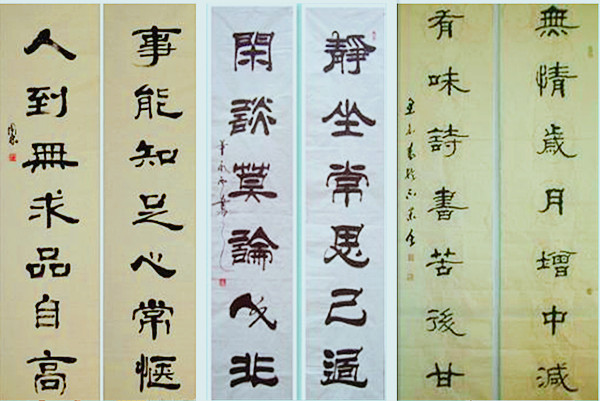 無情歲月增中減
有味詩書苦後甘
靜坐常思己過
閑談莫論人非
事能知足心常愜
人到無求品自高